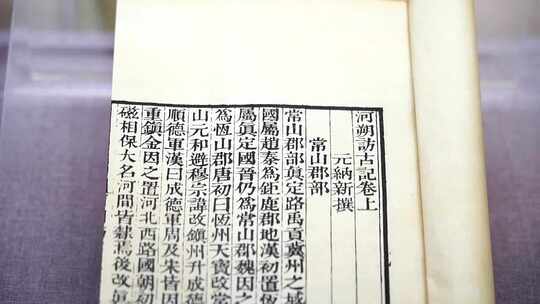 河朔訪古記卷上
元納新撰
常山郡部
常山郡部眞定路禹貢冀州之域
國屬趙秦爲鉅鹿郡地漢初置恆
屬眞定國晉仍爲常山郡魏因之
爲恆山郡唐初曰恆州天寶改常
山元和避穆宗諱改鎭州升成德
順德軍漢曰成德軍周及朱皆因
重鎭金因之置河北西路國朝初
磁相保大名河間皆隸焉後改眞